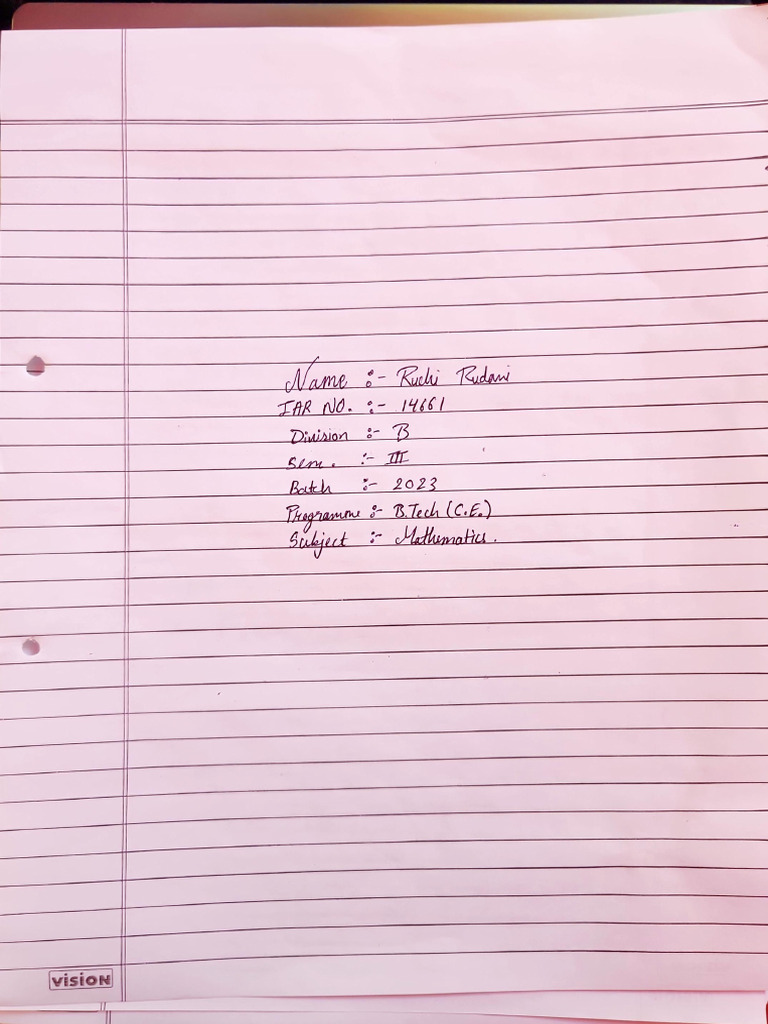 Name :- Ruchi Rudani
IAR NO. :- 14661
Division :- B
Sem. :- III
Batch :- 2023
Programme :- B.Tech (C.E.)
Subject :- Mathematics.
vision